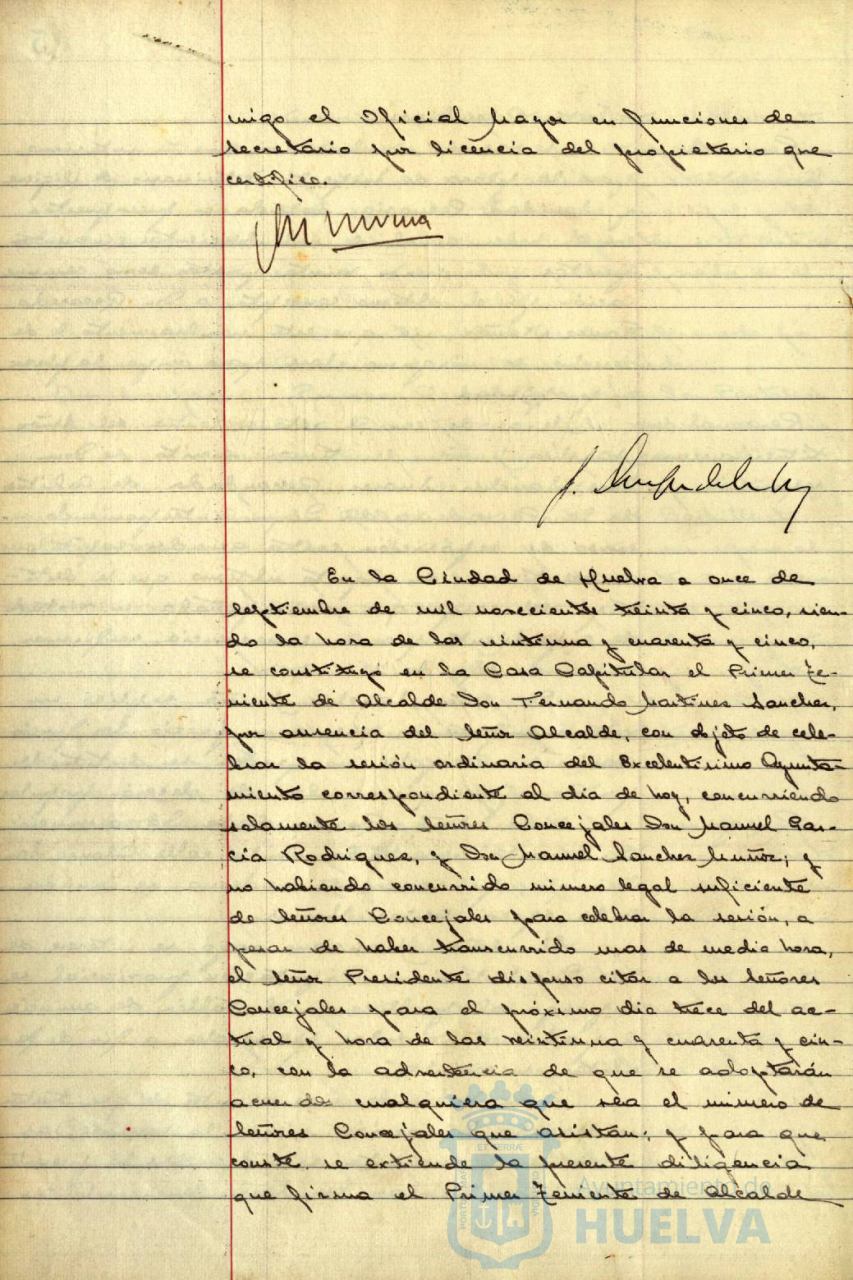 migo el Oficial Mayor en funciones de
secretario por licencia del propietario que
certifico.
En la Ciudad de Huelva a once de
septiembre de mil novecientos treinta y cinco, sien-
do la hora de las veintiuna y cuarenta y cinco,
se constituyó en la Casa Capitular el Primer Te-
niente de Alcalde Don Fernando Martinez Sanchez,
por ausencia del Señor Alcalde, con objeto de cele-
brar la sesión ordinaria del Excelentísimo Ayunta-
miento correspondiente al dia de hoy, concurriendo
solamente los Señores Concejales Don Manuel Gar-
cía Rodriguez, y Don Manuel Sanchez Muñoz; y
no habiendo concurrido número legal suficiente
de Señores Concejales para celebrar la sesión, a
pesar de haber transcurrido mas de media hora,
el Señor Presidente dispuso citar a los Señores
Concejales para el próximo dia trece del ac-
tual y hora de las veintiuna y cuarenta y cin-
co, con la advertencia de que se adoptarán
acuerdos cualquiera que sea el número de
Señores Concejales que asistan; y para que
conste se extiende la presente diligencia
que firma el Primer Teniente de Alcalde
Ayuntamiento de
HUELVA